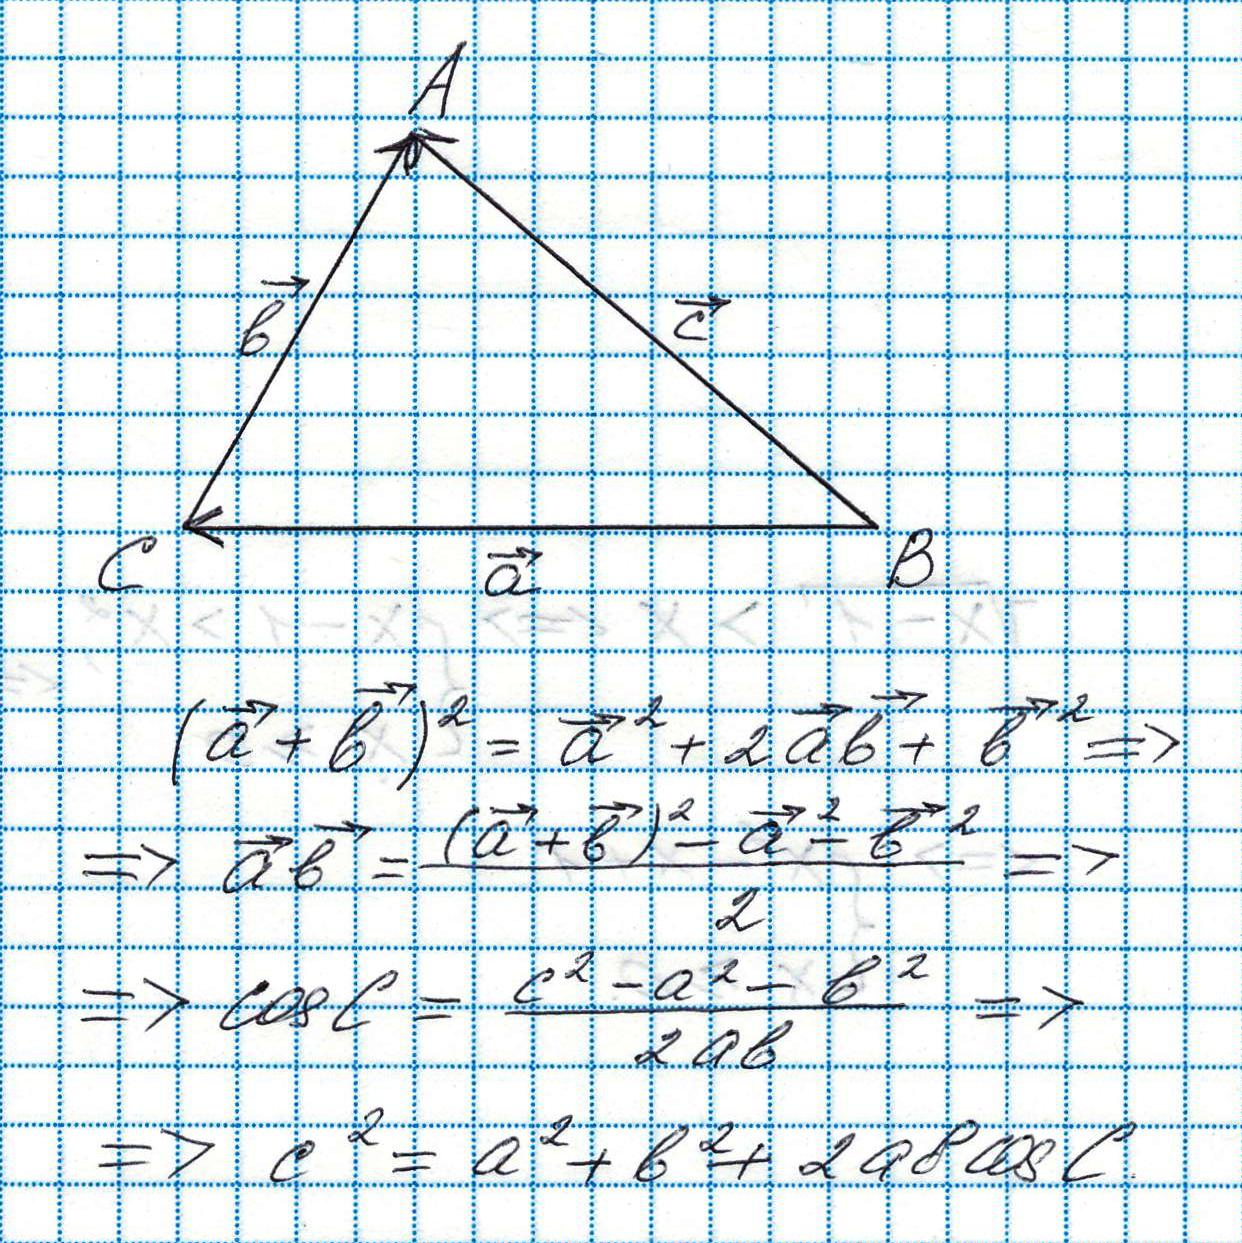 A
b⃗
c⃗
C
a⃗
B
(a⃗ + b⃗)² = a⃗² + 2a⃗b⃗ + b⃗² =>
=> a⃗b⃗ = ((a⃗ + b⃗)² - a⃗² - b⃗²) / 2 =>
=> cos C = (c² - a² - b²) / 2ab =>
=> c² = a² + b² + 2ab cos C.